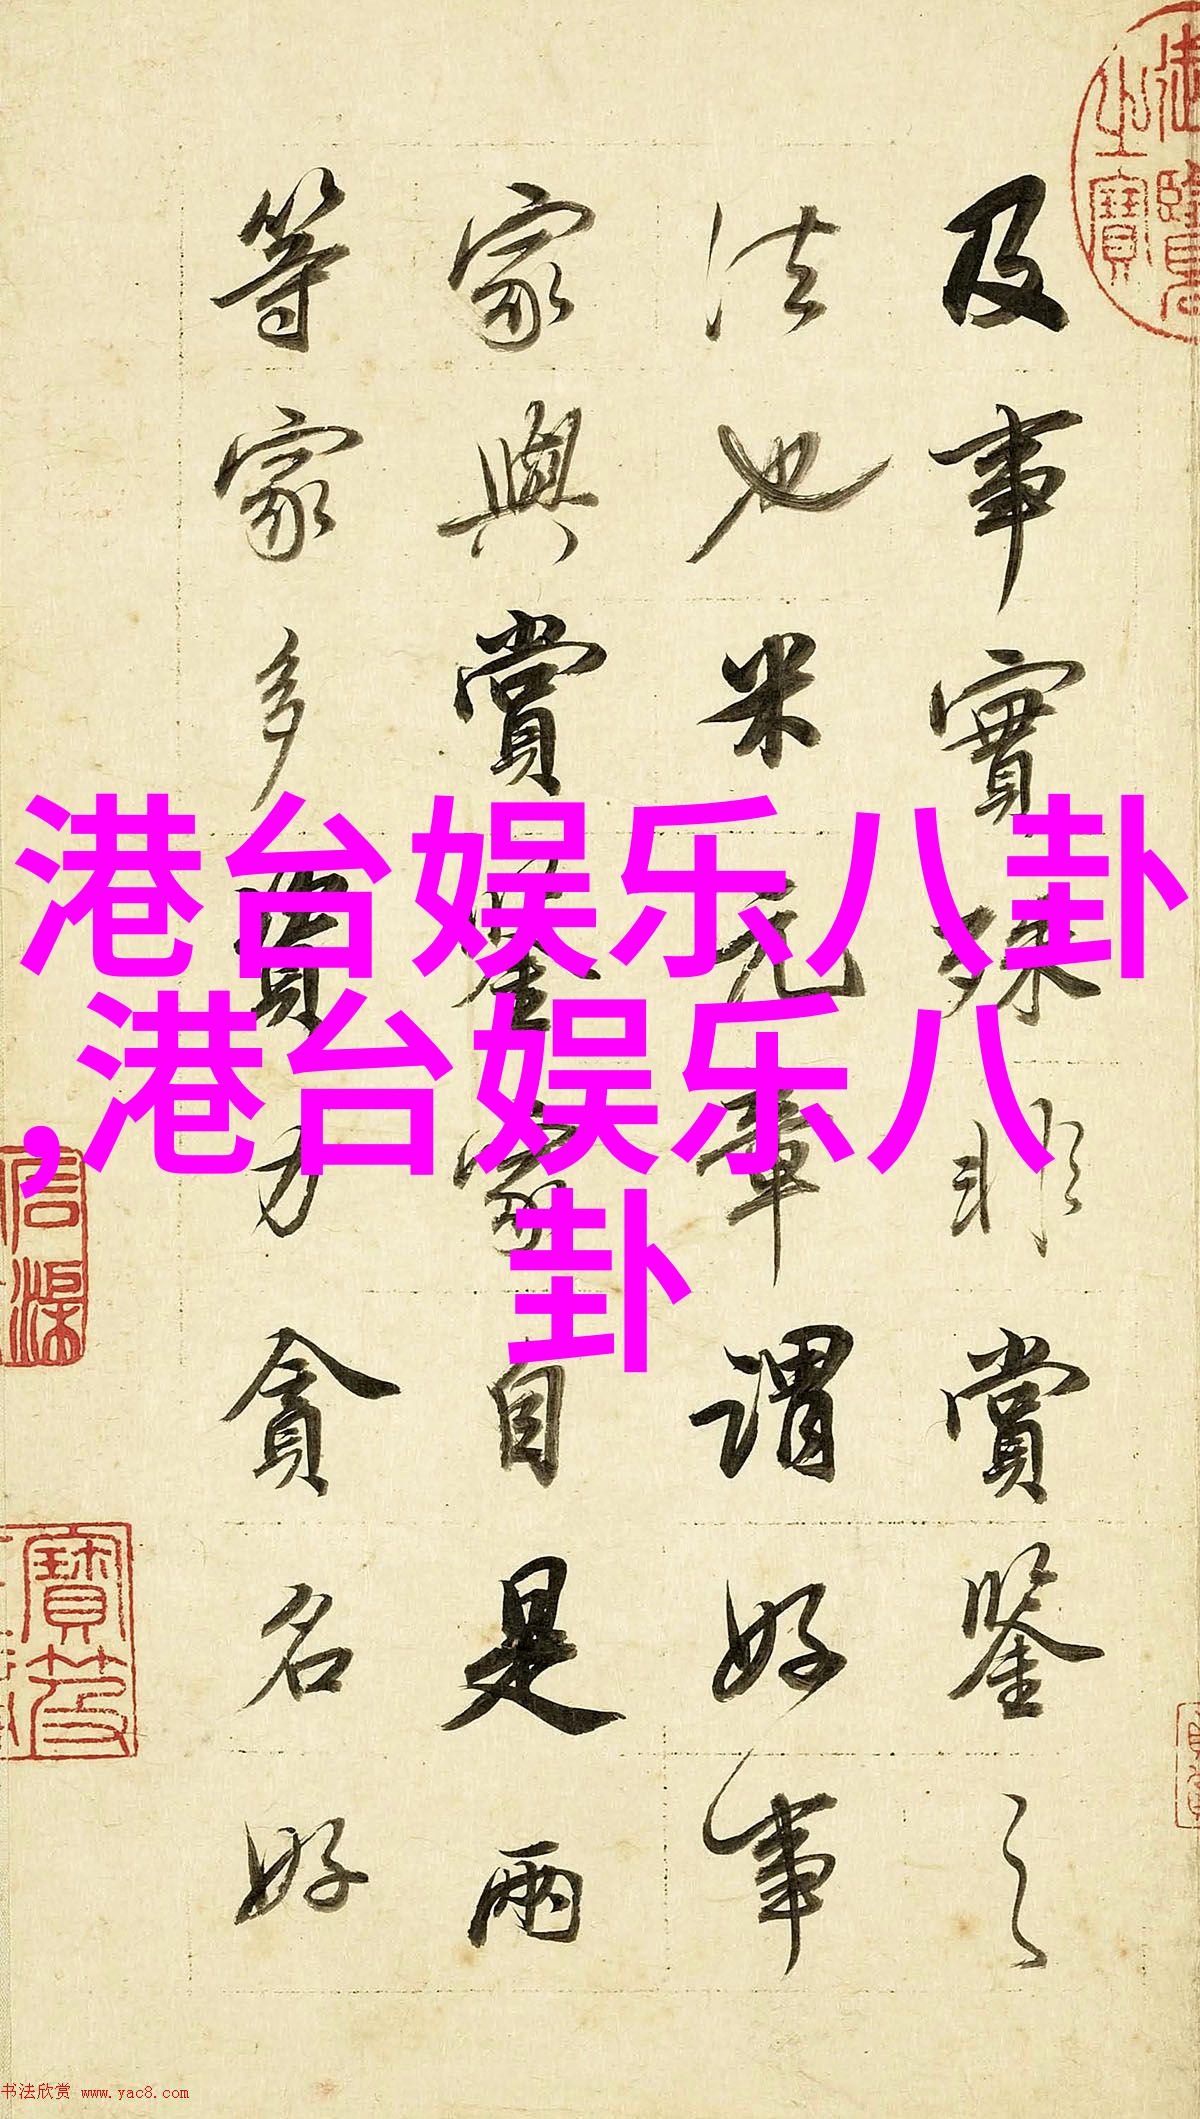 及事實殊非賞鑒之
法也米元章謂好事
家與賞鑒家自是兩
等家多資力貪名好
港台娱乐八卦
,港台娱乐八
卦
书法欣赏 www.yac8.com